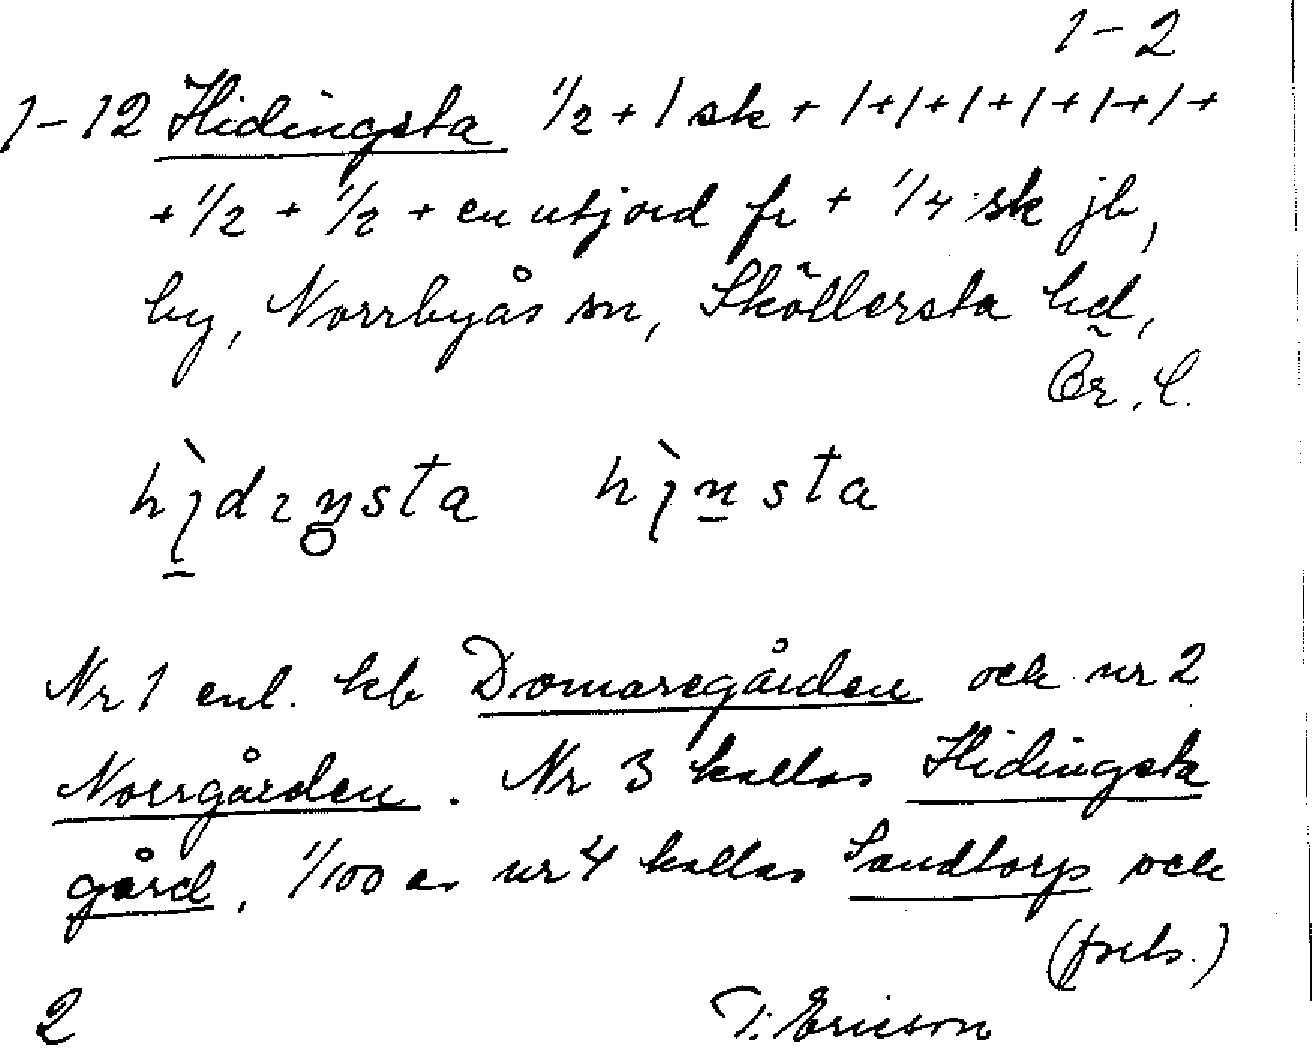 1-2
1-12 Hidingsta 1/2 + 1 sk + 1+1+1+1+1+1+
+ 1/2 + 1/2 + en utjord fr + 1/4 sk jb,
by, Norrbyås sn, Sköllersta hd,
Ör. l.
Nr 1 enl. kb Domaregården och nr 2
Norrgården. Nr 3 kallas Hidingsta
gård, 1/100 av nr 4 kallas Sandtorp och
(forts.)
2 T. Ericson